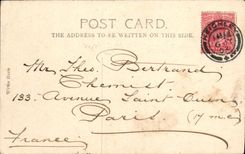 POST CARD.
THE ADDRESS TO BE WRITTEN ON THIS SIDE.
KEIGHLEY
Mr. Theo. Bertrand
Chemist
133. Avenue Saint-Ouen
Paris (17 me)
France